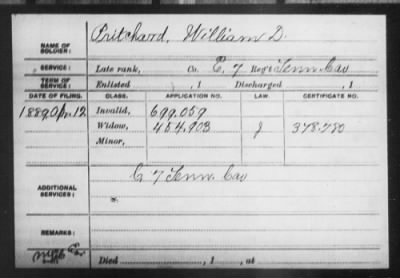 NAME OF SOLDIER: Pritchard, William D.
SERVICE: Late rank, Co. C, 7 Reg't Tenn. Cav
TERM OF SERVICE: Enlisted , 1 Discharged , 1
DATE OF FILING. CLASS. APPLICATION NO. LAW. CERTIFICATE NO.
1889 Apr. 12 Invalid, 699.059
Widow, 454.903 J 378.780
Minor,
ADDITIONAL SERVICES: C 7 Tenn. Cav
REMARKS:
Died , 1 , at